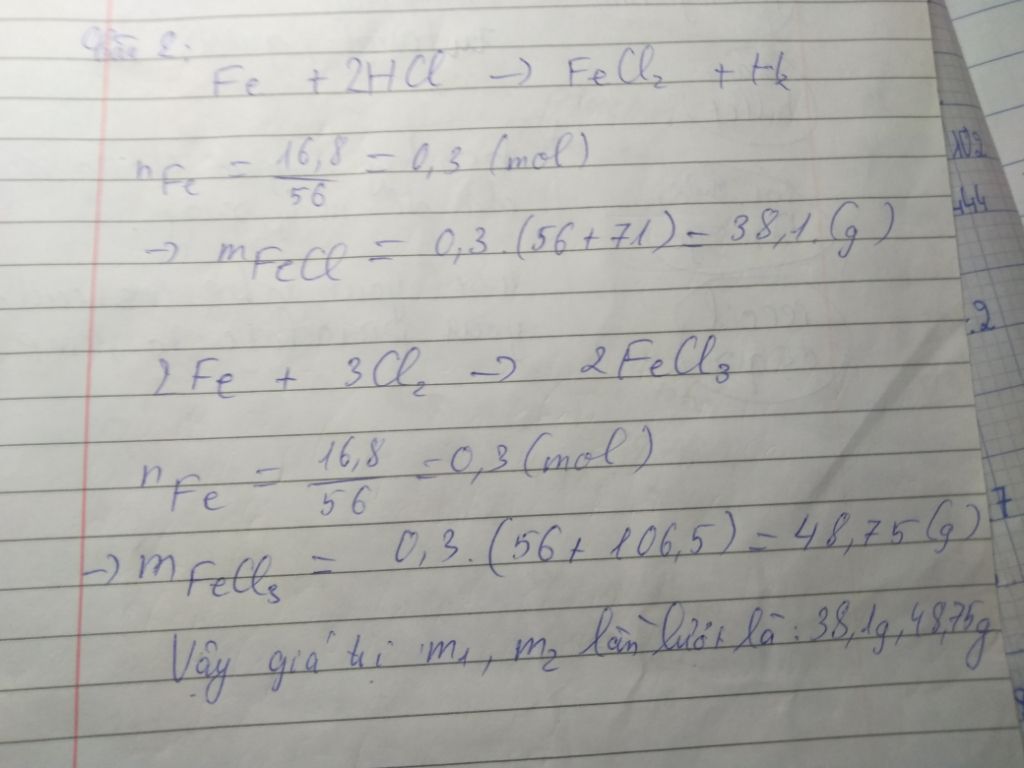 Câu 2:
Fe + 2HCl → FeCl₂ + H₂
nFe = 16,8/56 = 0,3 (mol)
→ mFeCl = 0,3.(56+71) = 38,1.(g)
2Fe + 3Cl₂ → 2FeCl₃
nFe = 16,8/56 = 0,3 (mol)
→ mFeCl₃ = 0,3.(56+106,5) = 48,75(g)
Vậy giá trị m₁, m₂ lần lượt là: 38,1g, 48,75g
102
444
:2
7